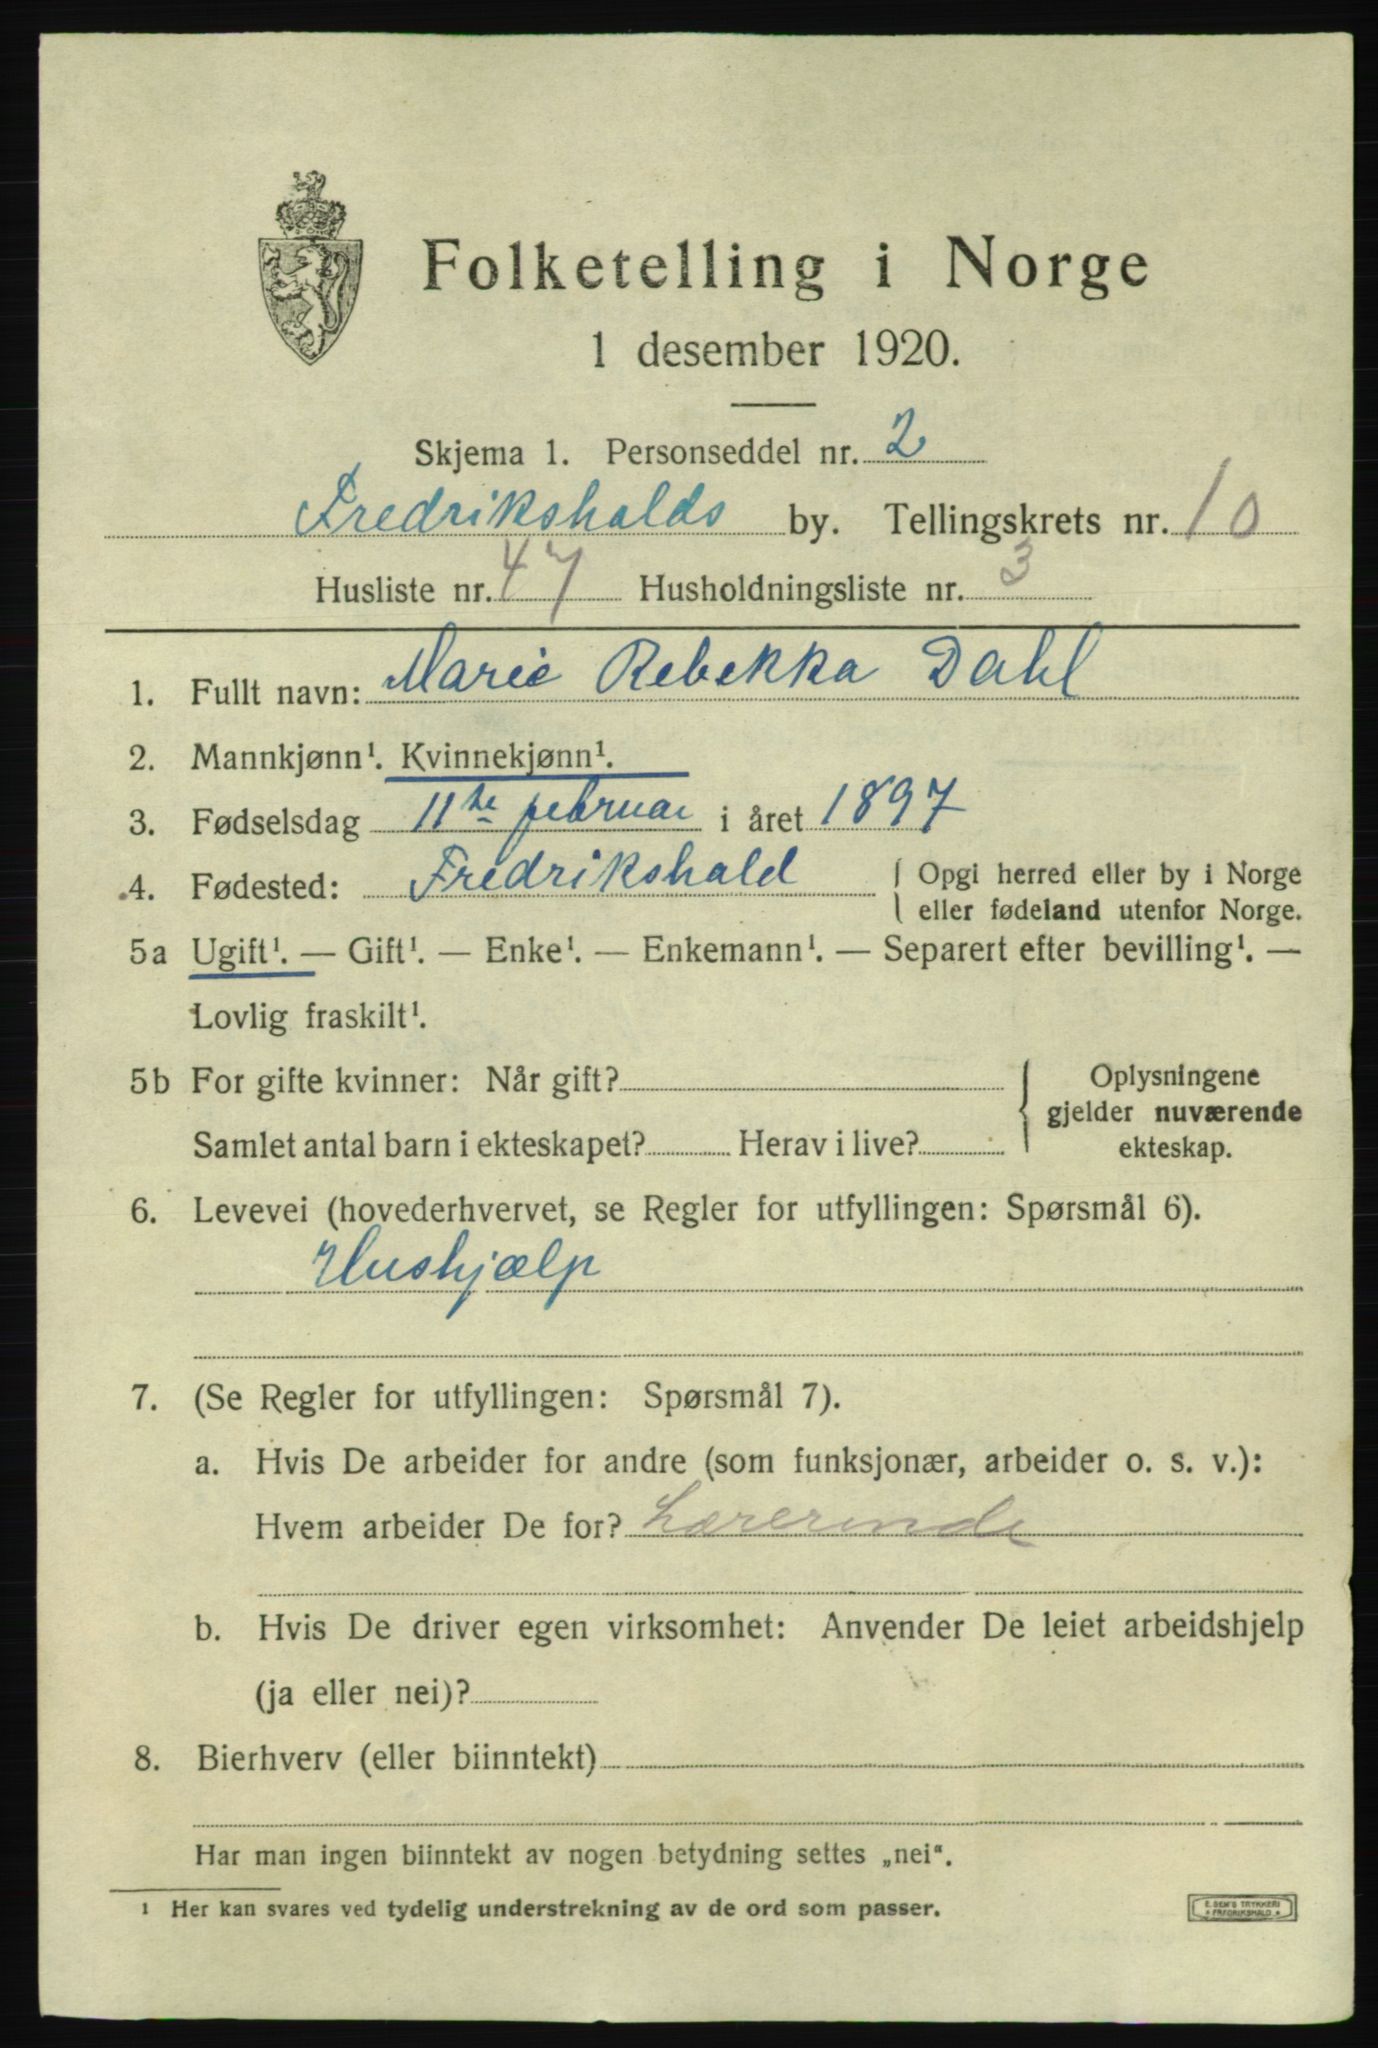 Folketelling i Norge
1 desember 1920.
Skjema 1. Personseddel nr. 2
Fredrikshalds by. Tellingskrets nr. 10
Husliste nr. 47 Husholdningsliste nr. 3
1. Fullt navn: Marie Rebekka Dahl
2. Mannkjønn¹. Kvinnekjønn¹.
3. Fødselsdag 11te februar i året 1897
4. Fødested: Fredrikshald { Opgi herred eller by i Norge
eller fødeland utenfor Norge.
5a Ugift¹. — Gift¹. — Enke¹. — Enkemann¹. — Separert efter bevilling¹. —
Lovlig fraskilt¹.
5b For gifte kvinner: Når gift? { Oplysningene
gjelder nuværende
Samlet antal barn i ekteskapet? Herav i live? ekteskap.
6. Levevei (hovederhvervet, se Regler for utfyllingen: Spørsmål 6).
Hushjælp
7. (Se Regler for utfyllingen: Spørsmål 7).
a. Hvis De arbeider for andre (som funksjonær, arbeider o. s. v.):
Hvem arbeider De for? Lærerinde
b. Hvis De driver egen virksomhet: Anvender De leiet arbeidshjelp
(ja eller nei)?
8. Bierhverv (eller biinntekt)
Har man ingen biinntekt av nogen betydning settes „nei“.
¹ Her kan svares ved tydelig understrekning av de ord som passer.
E. SEM'S TRYKKERI
* FREDRIKSHALD *